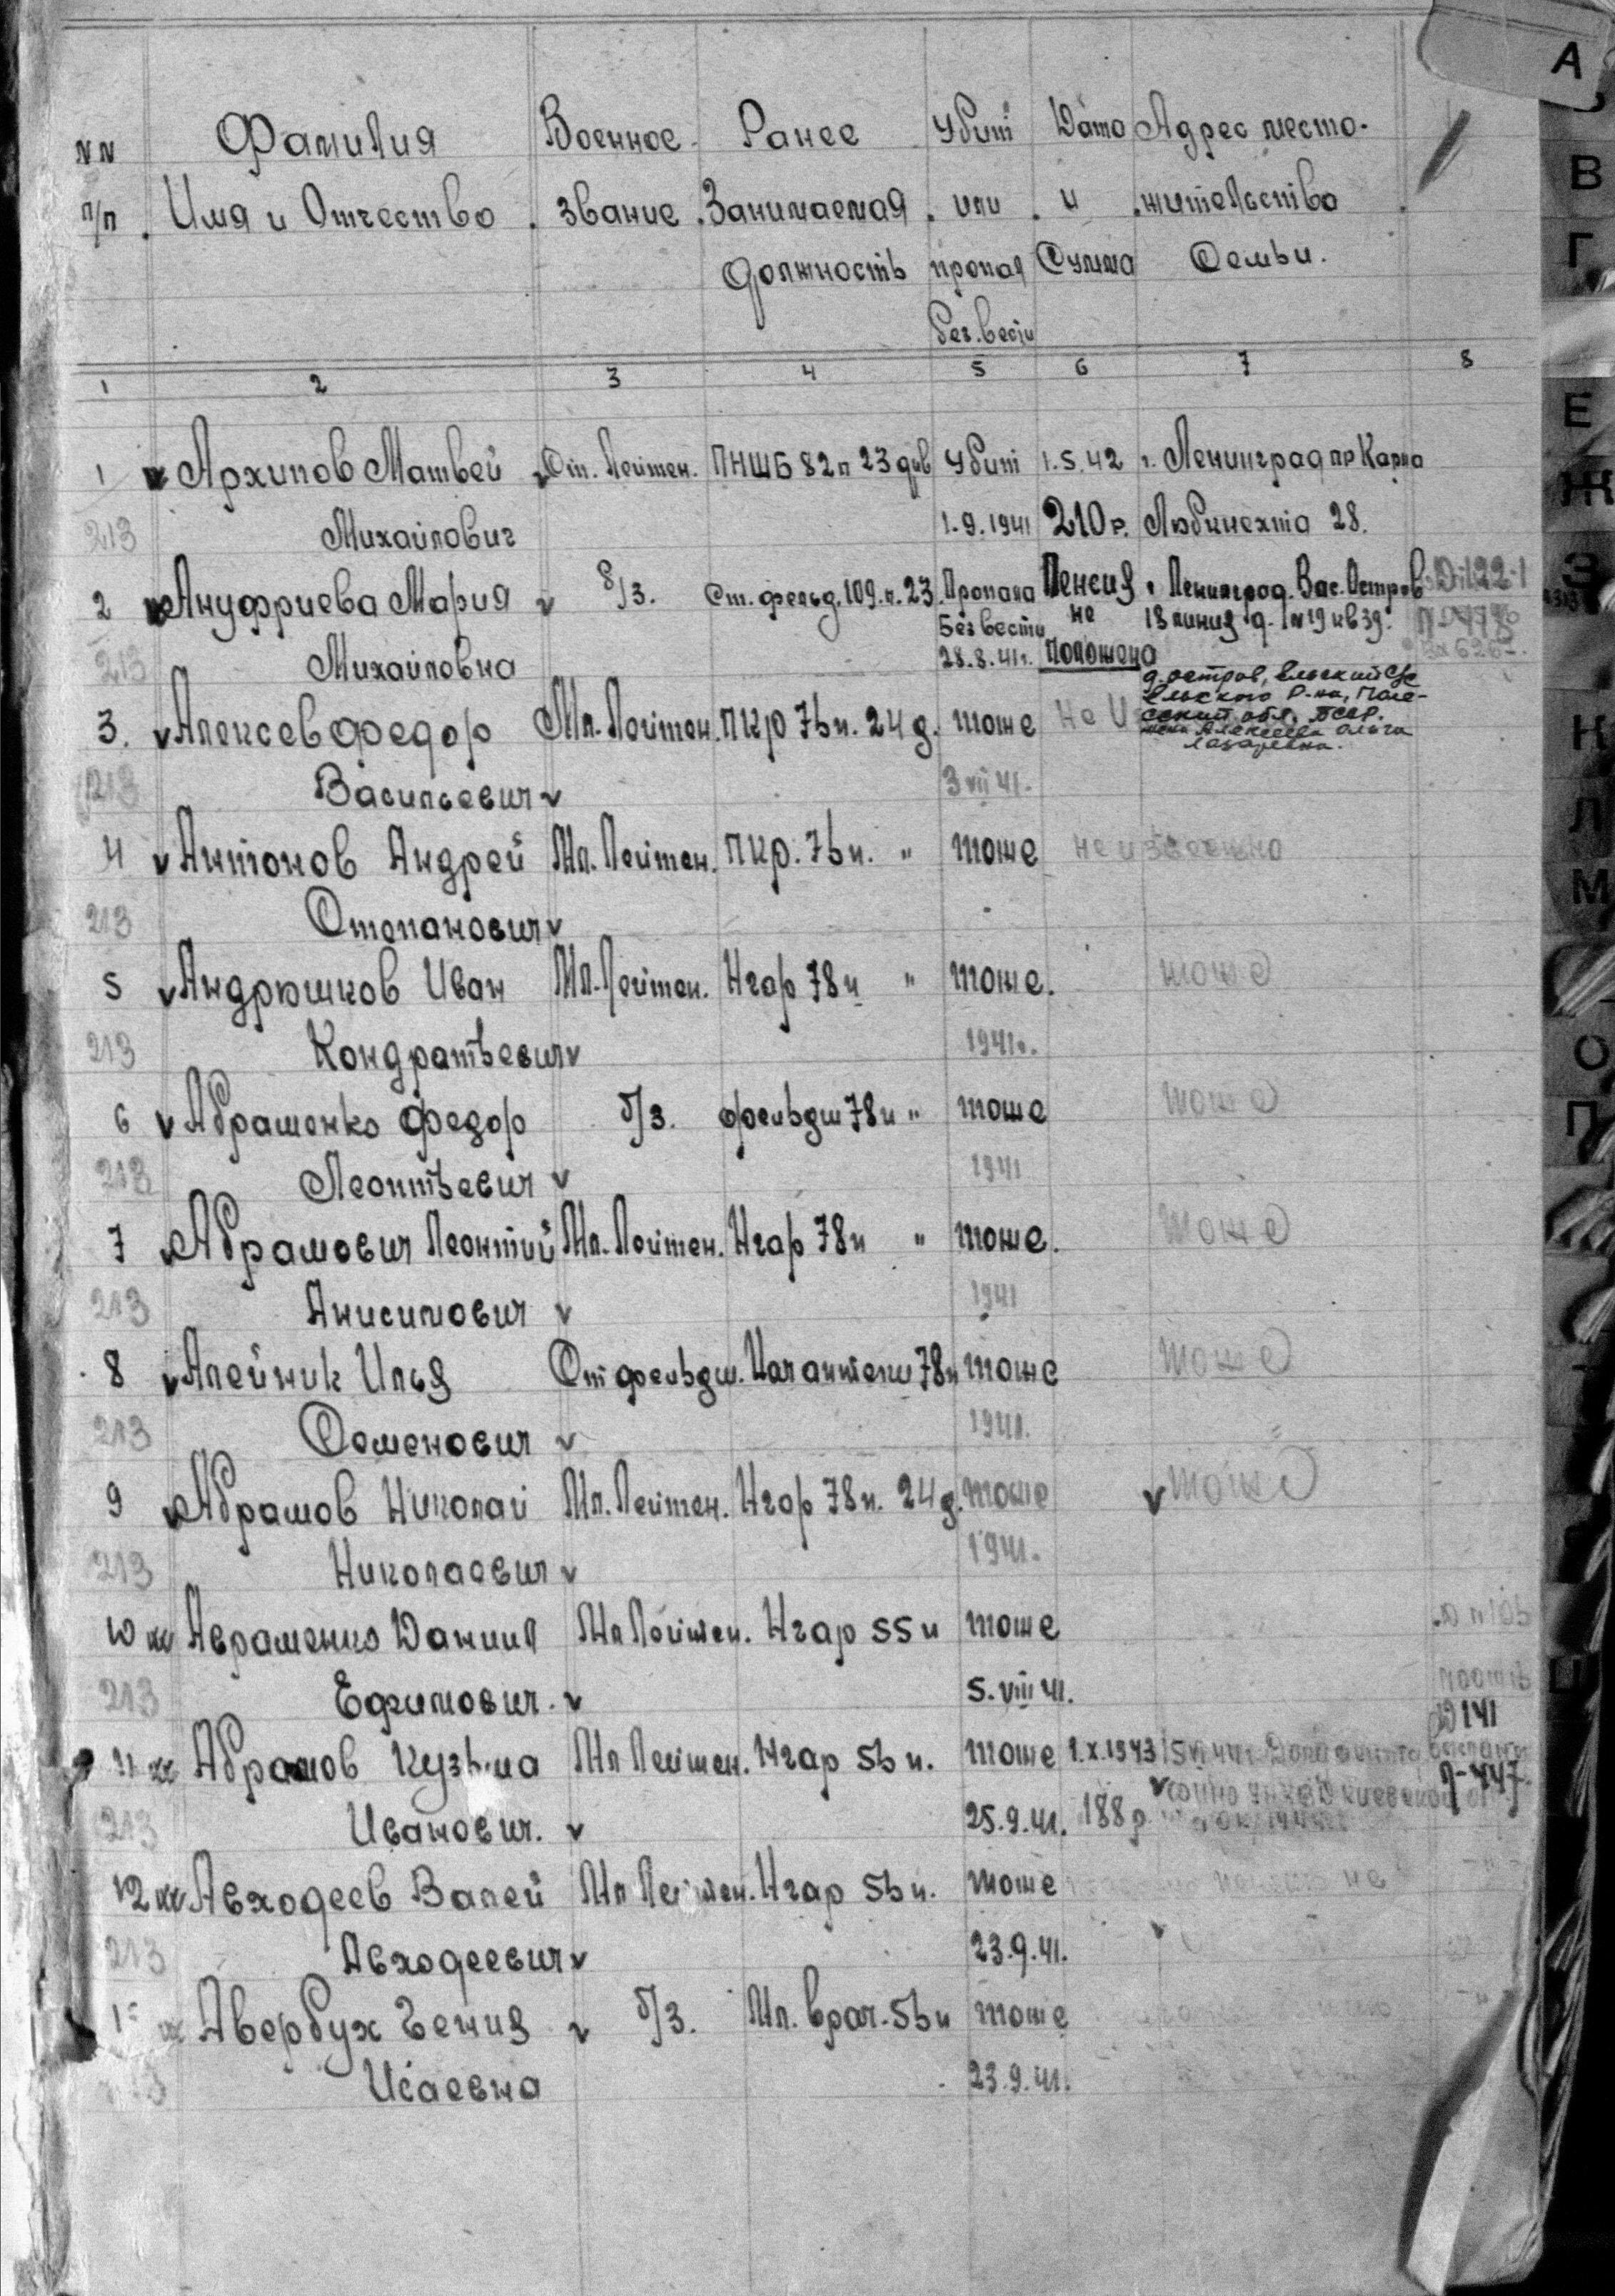 NN Фамилия Военное Ранее Убит Дата Адрес место-
п/п Имя и Отчество звание Занимаемая или и жительство
должность пропал Сумма Семьи.
без вести
1 2 3 4 5 6 7 8
1 Архипов Матвей Ст. Лейтен. ПНШБ 82п 23 див Убит 1.5.42 г. Ленинград пр Карла
213 Михайлович 1.9.1941 210 р. Любкнехта 28.
2 Ануфриева Мария б/з. Ст. фельд. 109.п.23. Пропала Пенсия г. Ленинград. Вас. Остров
без вести не 18 линия д. №19 кв 39.
213 Михайловна 28.8.41г. положена
д. остров, Ельский с/с
Ельского р-на, Поле-
3. Алексеев Федор Мл. Лейтен. ПКР 7бн. 24 д. тоже сский обл. БССР.
жена Алексеева Ольга
Лазаревна.
213 Васильевич 3 VII 41.
4 Антонов Андрей Мл. Лейтен. ПКР. 7бн. " тоже неизвестно
213 Степанович
5 Андрюшков Иван Мл. Лейтен. Нгар 78п " тоже. тоже
213 Кондратьевич 1941г.
6 Абрашенко Федор б/з. фельдш 78п " тоже тоже
213 Леонтьевич 1941
7 Абрамович Леонтий Мл. Лейтен. Нгар 78п " тоже. тоже
213 Анисимович 1941
8 Алейник Илья Ст фельдш. Нач аптеки 78п тоже тоже
213 Семенович 1941.
9 Абрамов Николай Мл. Лейтен. Нгар 78п. 24 д. тоже тоже
213 Николаевич 1941.
10 Аврашенко Даниил Мл Лейтен. Нгар 55п тоже
213 Ефимович. 5.VIII 41.
141
11 Абрамов Кузьма Мл Лейтен. Нгар 5бн. тоже 1.X.1943
447.
213 Иванович. 25.9.41. 188 р.
12 Авходеев Валей Мл Лейтен. Нгар 5бн. тоже
213 Авходеевич 23.9.41.
Авербух Гения б/з. Мл. врач. 5бн тоже
Исаевна 23.9.41.
А
В
Г
Е
Ж
З
Н
Л
М
О
П